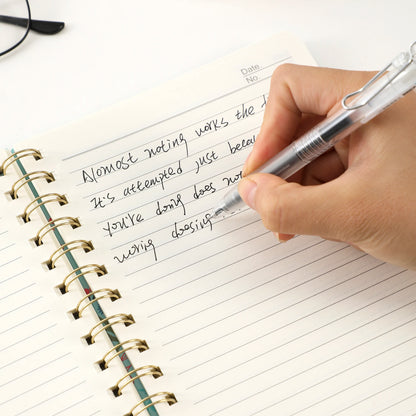 Date
No.
Alomost noting works the
It's attempted just becau
you're doing does no
woring doesing